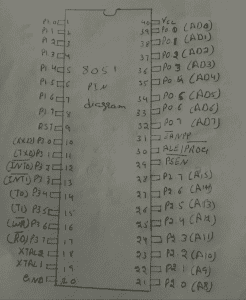 P1.0 1 40 Vcc
P1.1 2 39 P0.0 (AD0)
P1.2 3 38 P0.1 (AD1)
P1.3 4 37 P0.2 (AD2)
P1.4 5 8051 36 P0.3 (AD3)
P1.5 6 PIN 35 P0.4 (AD4)
P1.6 7 diagram 34 P0.5 (AD5)
P1.7 8 33 P0.6 (AD6)
RST 9 32 P0.7 (AD7)
(RXD) P3.0 10 31 EA/VPP
(TXD) P3.1 11 30 ALE/PROG
(INT0) P3.2 12 29 PSEN
(INT1) P3.3 13 28 P2.7 (A15)
(T0) P3.4 14 27 P2.6 (A14)
(T1) P3.5 15 26 P2.5 (A13)
(WR) P3.6 16 25 P2.4 (A12)
(RD) P3.7 17 24 P2.3 (A11)
XTAL2 18 23 P2.2 (A10)
XTAL1 19 22 P2.1 (A9)
GND 20 21 P2.0 (A8)